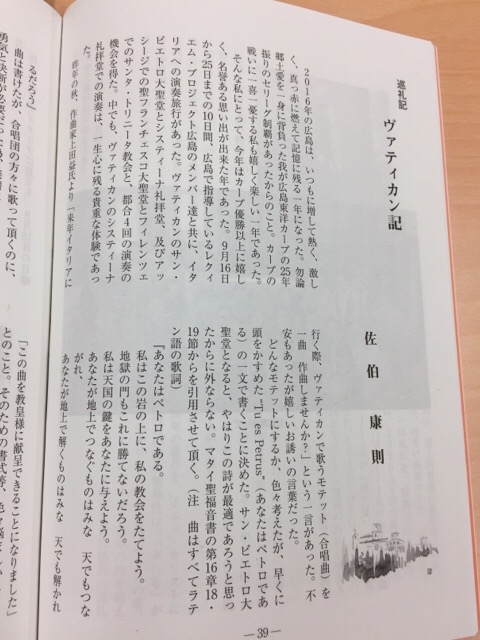 巡礼記
ヴァティカン記
佐伯 康則
2016年の広島は、いつもに増して熱く、激し
く、真っ赤に燃えて記憶に残る一年になった。勿論
郷土愛を一身に背負った我が広島東洋カープの25年
振りのセ・リーグ制覇があったからのこと。カープの
戦いに一喜一憂する私も嬉しく楽しい一年であった。
そんな私にとって、今年はカープ優勝以上に嬉し
く、名誉ある思い出が出来た年であった。9月16日
から25日までの10日間、広島で指導しているレクィ
エム・プロジェクト広島のメンバー達と共に、イタ
リアへの演奏旅行があった。ヴァティカンのサン・
ピエトロ大聖堂とシスティーナ礼拝堂、及びアッ
シージでの聖フランチェスコ大聖堂とフィレンツェ
でのサンタ・トリニータ教会と、都合4回の演奏の
機会を得た。中でも、ヴァティカンのシスティーナ
礼拝堂での演奏は、一生心に残る貴重な体験であっ
た。
昨年の秋、作曲家上田益氏より「来年イタリアに
行く際、ヴァティカンで歌うモテット（合唱曲）を
一曲 作曲しませんか？」という一言があった。不
安もあったが嬉しいお誘いの言葉だった。
どんなモテットにするか、色々考えたが、早くに
頭をかすめた"Tu es Petrus"（あなたはペトロであ
る）の一文で書くことに決めた。サン・ピエトロ大
聖堂となると、やはりこの詩が最適であろうと思っ
たからに外ならない。マタイ聖福音書の第16章18・
19節からを引用させて頂く。（注 曲はすべてラテ
ン語の歌詞）
『あなたはペトロである。
私はこの岩の上に、私の教会をたてよう。
地獄の門もこれに勝てないだろう。
私は天国の鍵をあなたに与えよう。
あなたが地上でつなぐものはみな 天でもつな
がれ、
あなたが地上で解くものはみな 天でも解かれ
るだろう』
曲は書けたが、合唱団の方々に歌って頂くのに、
「この曲を教皇様に献呈できることになりました」
とのこと。そのための書式等、
―39―